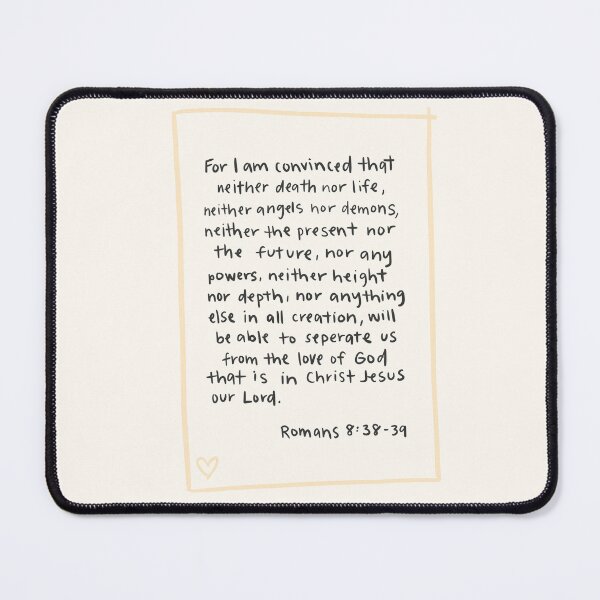 For I am convinced that
neither death nor life,
neither angels nor demons,
neither the present nor
the future, nor any
powers, neither height
nor depth, nor anything
else in all creation, will
be able to seperate us
from the love of God
that is in Christ Jesus
our Lord.
Romans 8:38-39